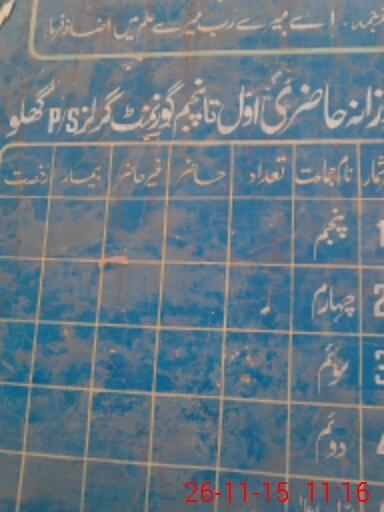 ترجمہ۔ اے میرے رب میرے علم میں اضافہ فرما
روزانہ حاضری اوّل تا پنجم گورنمنٹ گرلز P/S گھلو
نام جماعت تعداد حاضر غیر حاضر بیمار رخصت
1 پنجم
2 چہارم
3 سوئم
4 دوئم
26-11-15 11:16